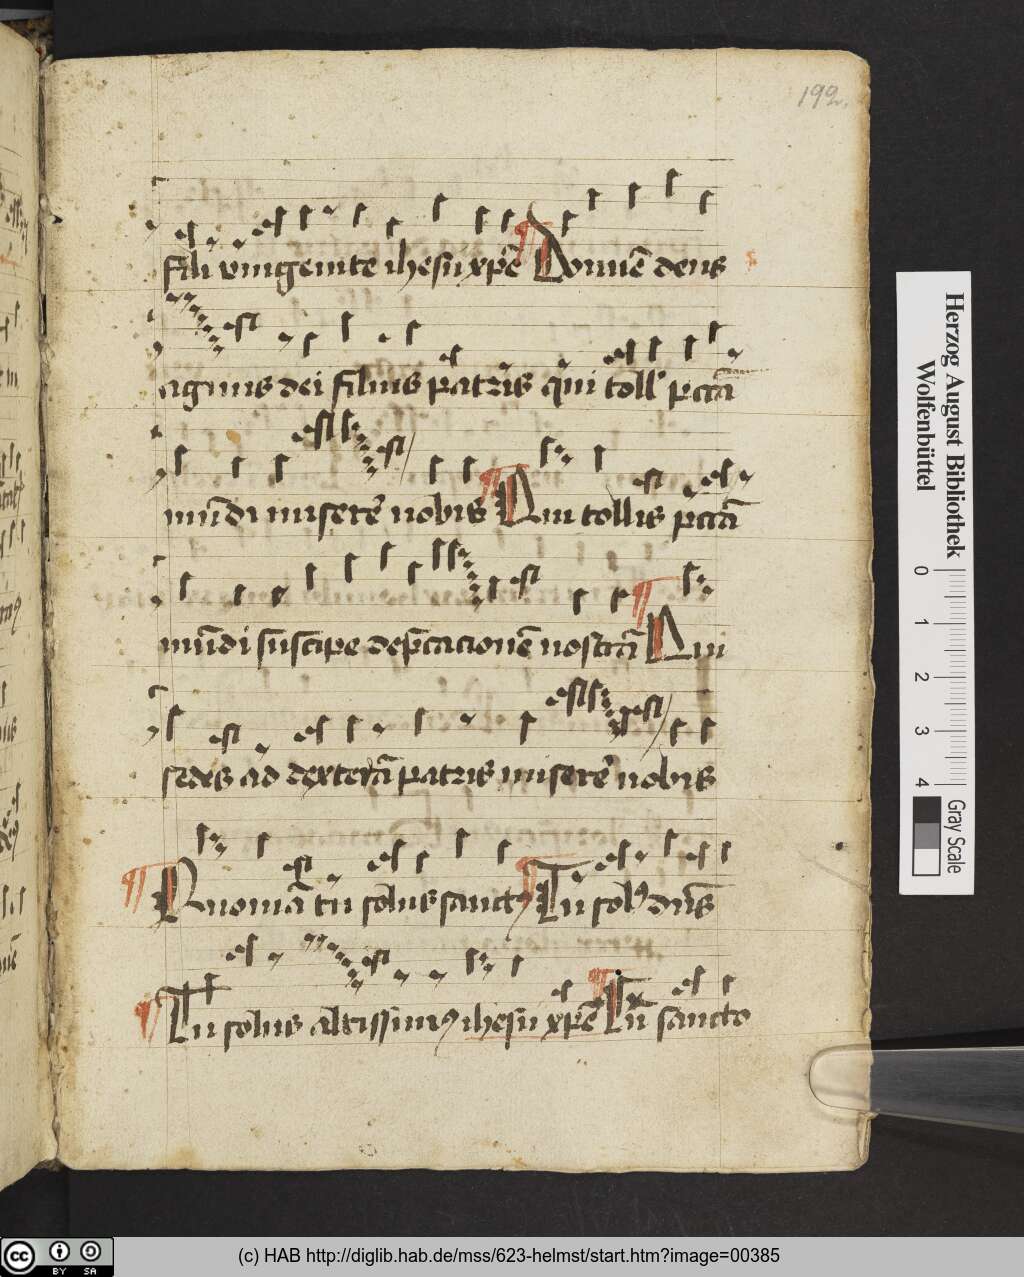 192.
fili vnigenite ihesu xpē Domine deus
agnus dei filius patris qui toll' pctā
mūdi miserē nobis Qui tollis pctā
mūdi suscipe dep̄cacionē nostrā Qui
sedes ad dexterā patris miserē nobis
Quoniā tu solus sanctꝰ Tu solꝰ dn̄s
Tu solus altissimꝰ ihesu xp̄e Cū sancto
Herzog August Bibliothek
Wolfenbüttel
0 1 2 3 4
Gray Scale
cc BY SA
(c) HAB http://diglib.hab.de/mss/623-helmst/start.htm?image=00385